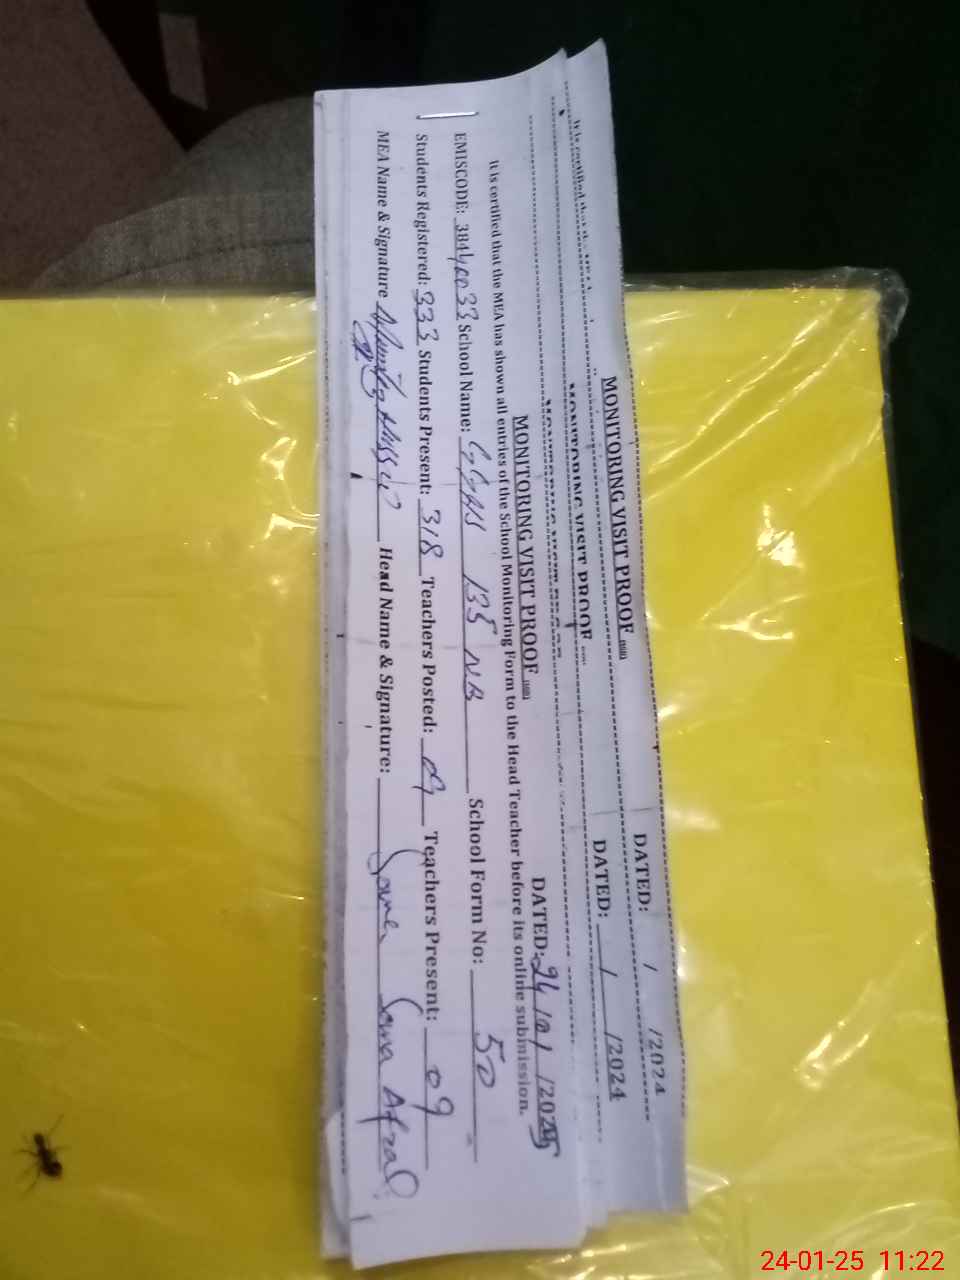 It is certified that the
MONITORING VISIT PROOF
DATED: / /2024
MONITORING VISIT PROOF
DATED: / /2024
MONITORING VISIT PROOF
DATED: 24/01/2025
It is certified that the MEA has shown all entries of the School Monitoring Form to the Head Teacher before its online submission.
EMISCODE: School Name: 135 NB School Form No: 50
Students Registered: 333 Students Present: 318 Teachers Posted: 09 Teachers Present: 09
MEA Name & Signature Head Name & Signature: Sama Afzal
24-01-25 11:22